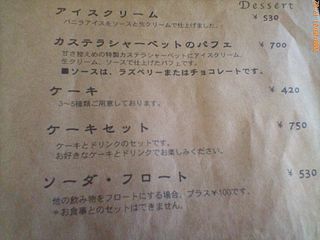 Dessert
アイスクリーム ¥530
バニラアイスをソースと生クリームで仕上げました。
カステラシャーベットのパフェ ¥700
甘さ控えめの特製カステラシャーベットにアイスクリーム、
生クリーム、ソースで仕上げたパフェです。
■ソースは、ラズベリーまたはチョコレートです。
ケーキ ¥420
3〜5種類ご用意しております。
ケーキセット ¥750
ケーキとドリンクのセットです。
お好きなケーキとドリンクでお楽しみください。
ソーダ・フロート ¥530
他の飲み物をフロートにする場合、プラス¥100です。
＊お食事とのセットはできません。